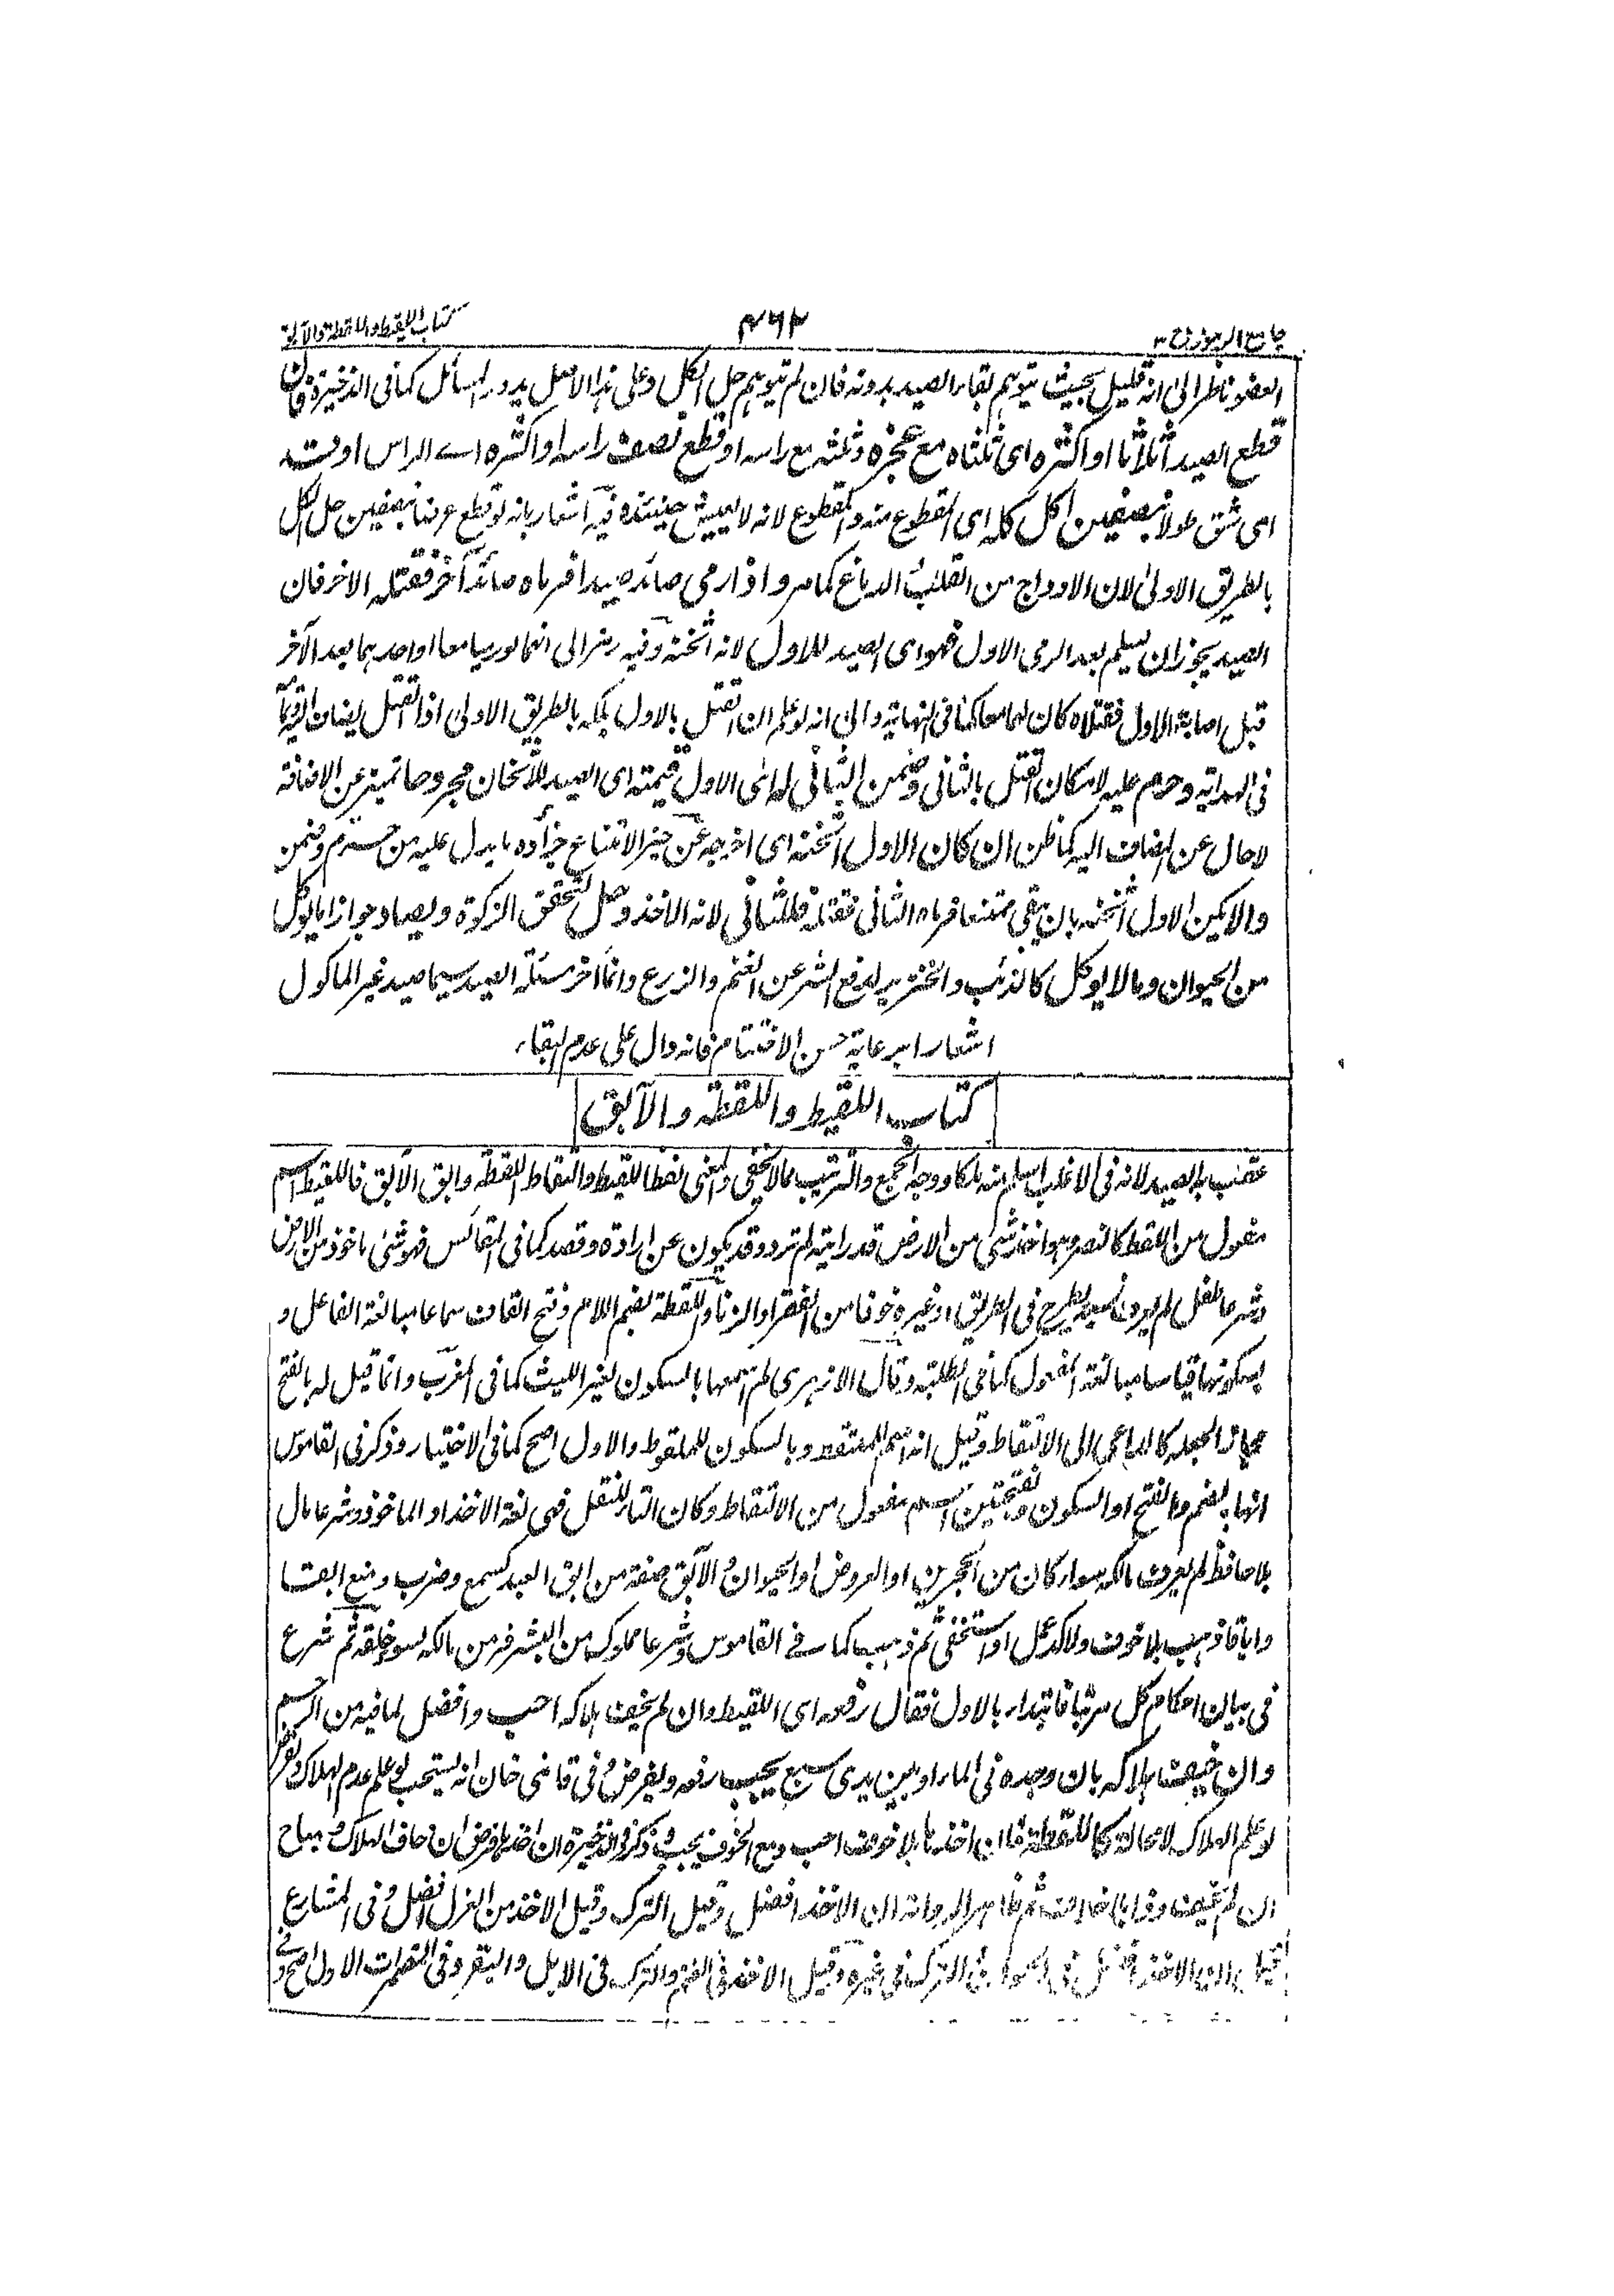 جامع الرموز ج ٣
٤٦٢
كتاب اللقيط واللقطة والآبق
العضو ناظرا الى انه قليل بحيث يتوهم بقاء الصيد بدونه فان لم يتوهم حل الكل وعلى هذا الاصل يدور المسائل كما فى الذخيرة وان
قطع الصيد اثلاثا او اكثره اى ثلثاه مع عجزه وثلثه مع راسه او قطع نصف راسه او اكثره اے الراس او قد
اى شق طولا نصفين اكل كله اى المقطوع منه والمقطوع لانه لا يعيش حينئذ وفيه اشعار بانه لو قطع عرضا نصفين حل الكل
بالطريق الاولى لان الاوداج من القلب الى الدماغ كما مر واذا رمى صائد صيدا فرماه صائد آخر فقتله الاخر فان
الصيد يجوز ان يسلم بعد الرمى الاول فهو اى الصيد للاول لانه اثخنه وفيه رمز الى انهما لو رميا معا او احدهما بعد الآخر
قبل اصابة الاول فقتلاه كان لهما معا كما فى النهاية والى انه لو علم ان القتل بالاول يملكه بالطريق الاولى اذ القتل يضاف اليه
فى الهداية وحرم عليه لامكان القتل بالثانى وضمن الثانى له اى الاول قيمته اى الصيد للاثخان مجروحا تميز عن الاضافة
لا حال عن المضاف اليه كما ظن ان كان الاول اثخنه اى اخرجه عن حيز الامتناع جزاؤه ما يدل عليه من حرم وضمن
والا يكن الاول اثخنه بان بقى ممتنعا فرماه الثانى فقتله فللثانى لانه الاخذ وحل لتحقق الزكوة ويصاد جوازا ما يوكل
من الحيوان وما لا يوكل كالذئب والخنزير لدفع الشر عن الغنم والزرع وانما اخر مسئلة الصيد سيما صيد غير الماكول
اشعارا برعاية حسن الاختتام فانه دال على عدم البقاء
كتاب اللقيط واللقطة والآبق
عقب به الصيد لانه فى الاغلب اسلم منه ملكا ووجه الجمع والترتيب مما لا يخفى والمعنى لفظ اللقيط والتقاط اللقطة وابق الآبق فاللقيط اسم
مفعول من اللقط كالنصر وهو اخذ شئ من الارض قد رايته لم ترد وقد يكون عن ارادة وقصد كما فى المقائس فهو شئ ماخوذ من الارض
وشرعا طفل لم يعرف نسبه يطرح فى الطريق او غيره خوفا من الفقر او الزنا واللقطة بضم اللام وفتح القاف سماعا مبالغة الفاعل و
بسكونها قياسا مبالغة المفعول كما فى الطلبة وقال الازهرى لم اسمعها بالسكون لغير الليث كما فى المغرب وانما قيل له بالفتح
لجعله كالداعى الى الالتقاط وقيل انه اسم الملتقط وبالسكون للملقوط والاول اصح كما فى الاختيار وذكر فى القاموس
انها بالضم والفتح او السكون وبفتحتين اسم مفعول من الالتقاط وكان التاء للنقل فهى لغة الاخذ او الماخوذ وشرعا مال
بلا حافظ لم يعرف مالكه سواء كان من الحجرين او العروض او الحيوان والآبق صفة من ابق العبد كسمع وضرب ومنع ابقا
واباقا ذهب بلا خوف ولا كد عمل او استخفى ثم ذهب كما فے القاموس وشرعا مملوك من البشر فر من مالكه لسوء خلقه ثم شرع
فى بيان احكام كل مرتبا فابتداء بالاول فقال رفعه اى اللقيط وان لم يخف هلاكه احب وافضل لما فيه من الترحم
وان خيف هلاكه بان وجده فى الماء او بين يدى سبع يجب رفعه ويفرض وفى قاضى خان انه يستحب لو علم عدم الهلاك ويفرض
لو علم الهلاك لا محالة كاللقطة فان اخذها بلا خوف احب ومع الخوف يجب وذكر فى الذخيرة ان اخذها فرض ان خاف الهلاك ومباح
ان لم يخف وهذا بلا خلاف ثم ظاهر الرواية ان الاخذ افضل وقيل الترك وقيل الاخذ من العزل افضل وفى المشارع
قيل ان الاخذ افضل فى الترك فى غيره وقيل الاخذ فى الغنم والترك فى الابل والبقر وفى المضمرات الاول اصح و